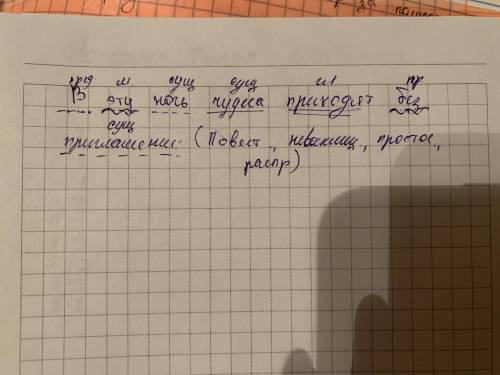 пред м. сущ сущ гл пр
В эту ночь чудеса приходят без
сущ
приглашения. (Повест., невосклиц., простое,
распр)